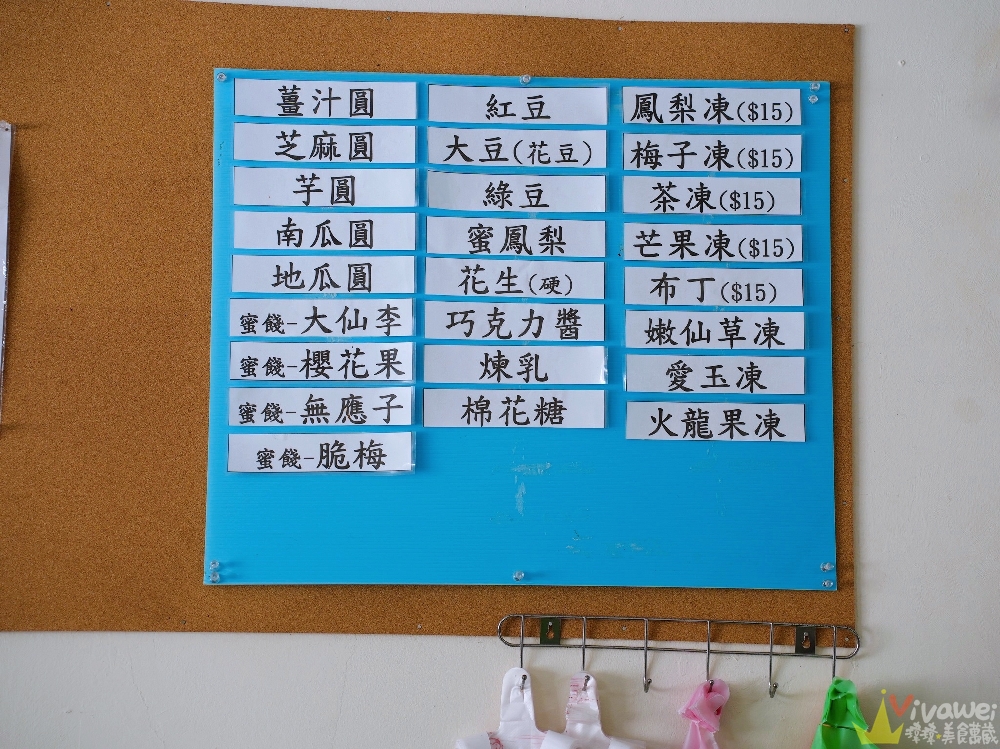 薑汁圓
芝麻圓
芋圓
南瓜圓
地瓜圓
蜜餞-大仙李
蜜餞-櫻花果
蜜餞-無應子
蜜餞-脆梅
紅豆
大豆(花豆)
綠豆
蜜鳳梨
花生(硬)
巧克力醬
煉乳
棉花糖
鳳梨凍($15)
梅子凍($15)
茶凍($15)
芒果凍($15)
布丁($15)
嫩仙草凍
愛玉凍
火龍果凍
Vivawei